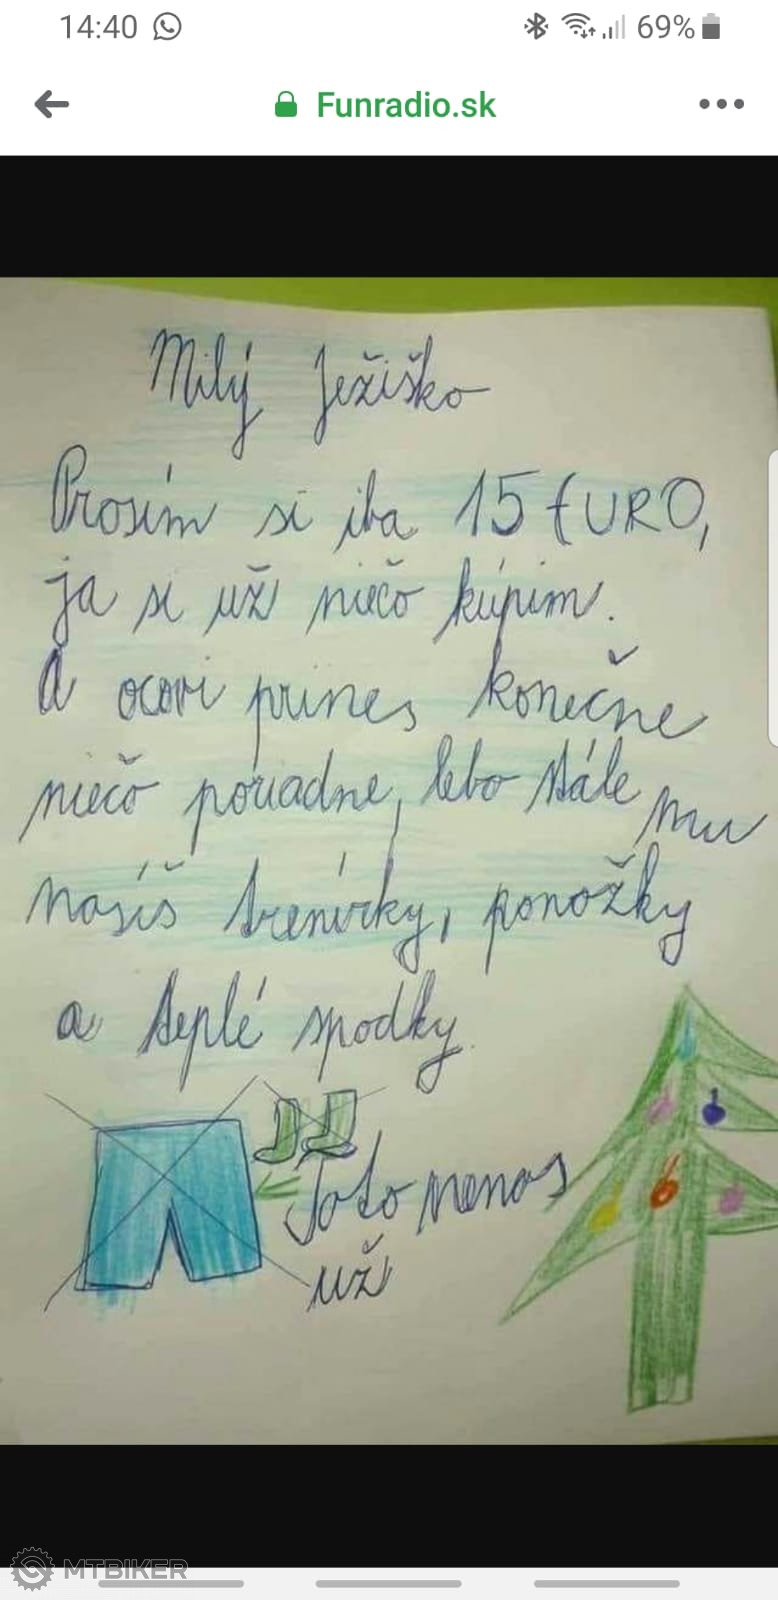 14:40
69%
Funradio.sk
Milý Ježiško
Prosím si iba 15 EURO,
ja si už niečo kúpim.
A ocovi prines konečne
niečo poriadne, lebo stále mu
nosíš trenírky, ponožky
a teplé spodky.
Toto nenos
už
MTBIKER